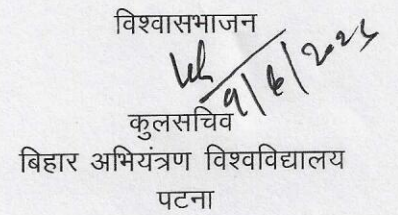 विश्वासभाजन
9/6/2025
कुलसचिव
बिहार अभियंत्रण विश्वविद्यालय
पटना